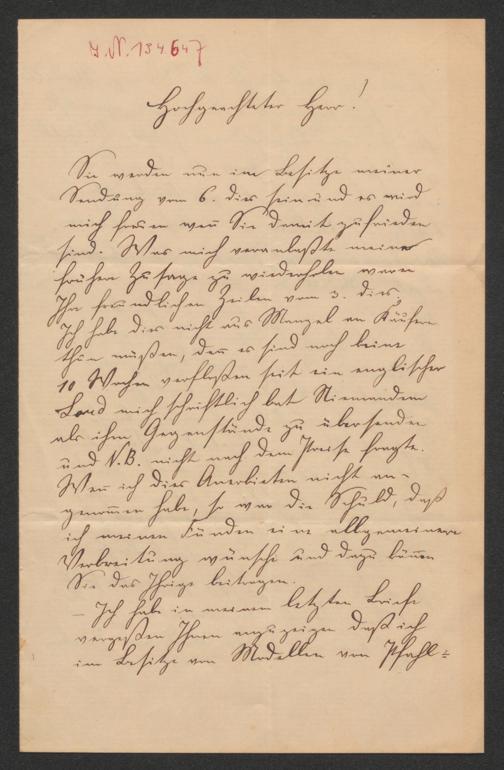 J. N. 134.647
Hochgeachteter Herr!
Sie werden nun im Besitze meiner
Sendung vom 6. dies sein und es wird
mich freuen weñ Sie damit zufrieden
sind. Was mich veranlaßte meine
frühere Zusage zu wiederholen waren
Ihre freundlichen Zeilen vom 3. dies,
Ich habe dies nicht aus Mangel an Käufern
thun müßen, deñ es sind noch keine
10 Wochen verfloßen seit ein englischer
Lord mich schriftlich bat Niemandem
als ihm Gegenstände zu übersenden
und N.B. nicht nach dem Preise fragte.
Weñ ich dies Anerbieten nicht an-
genom̃en habe, so war die Schuld, daß
ich meinen Funden eine allgemeinere
Verbreitung wünsche und dazu köñen
Sie das Ihrige beitragen.
– Ich habe in meinem letzten Briefe
vergeßen Ihnen anzuzeigen daß ich
im Besitze von Modellen von Pfahl=